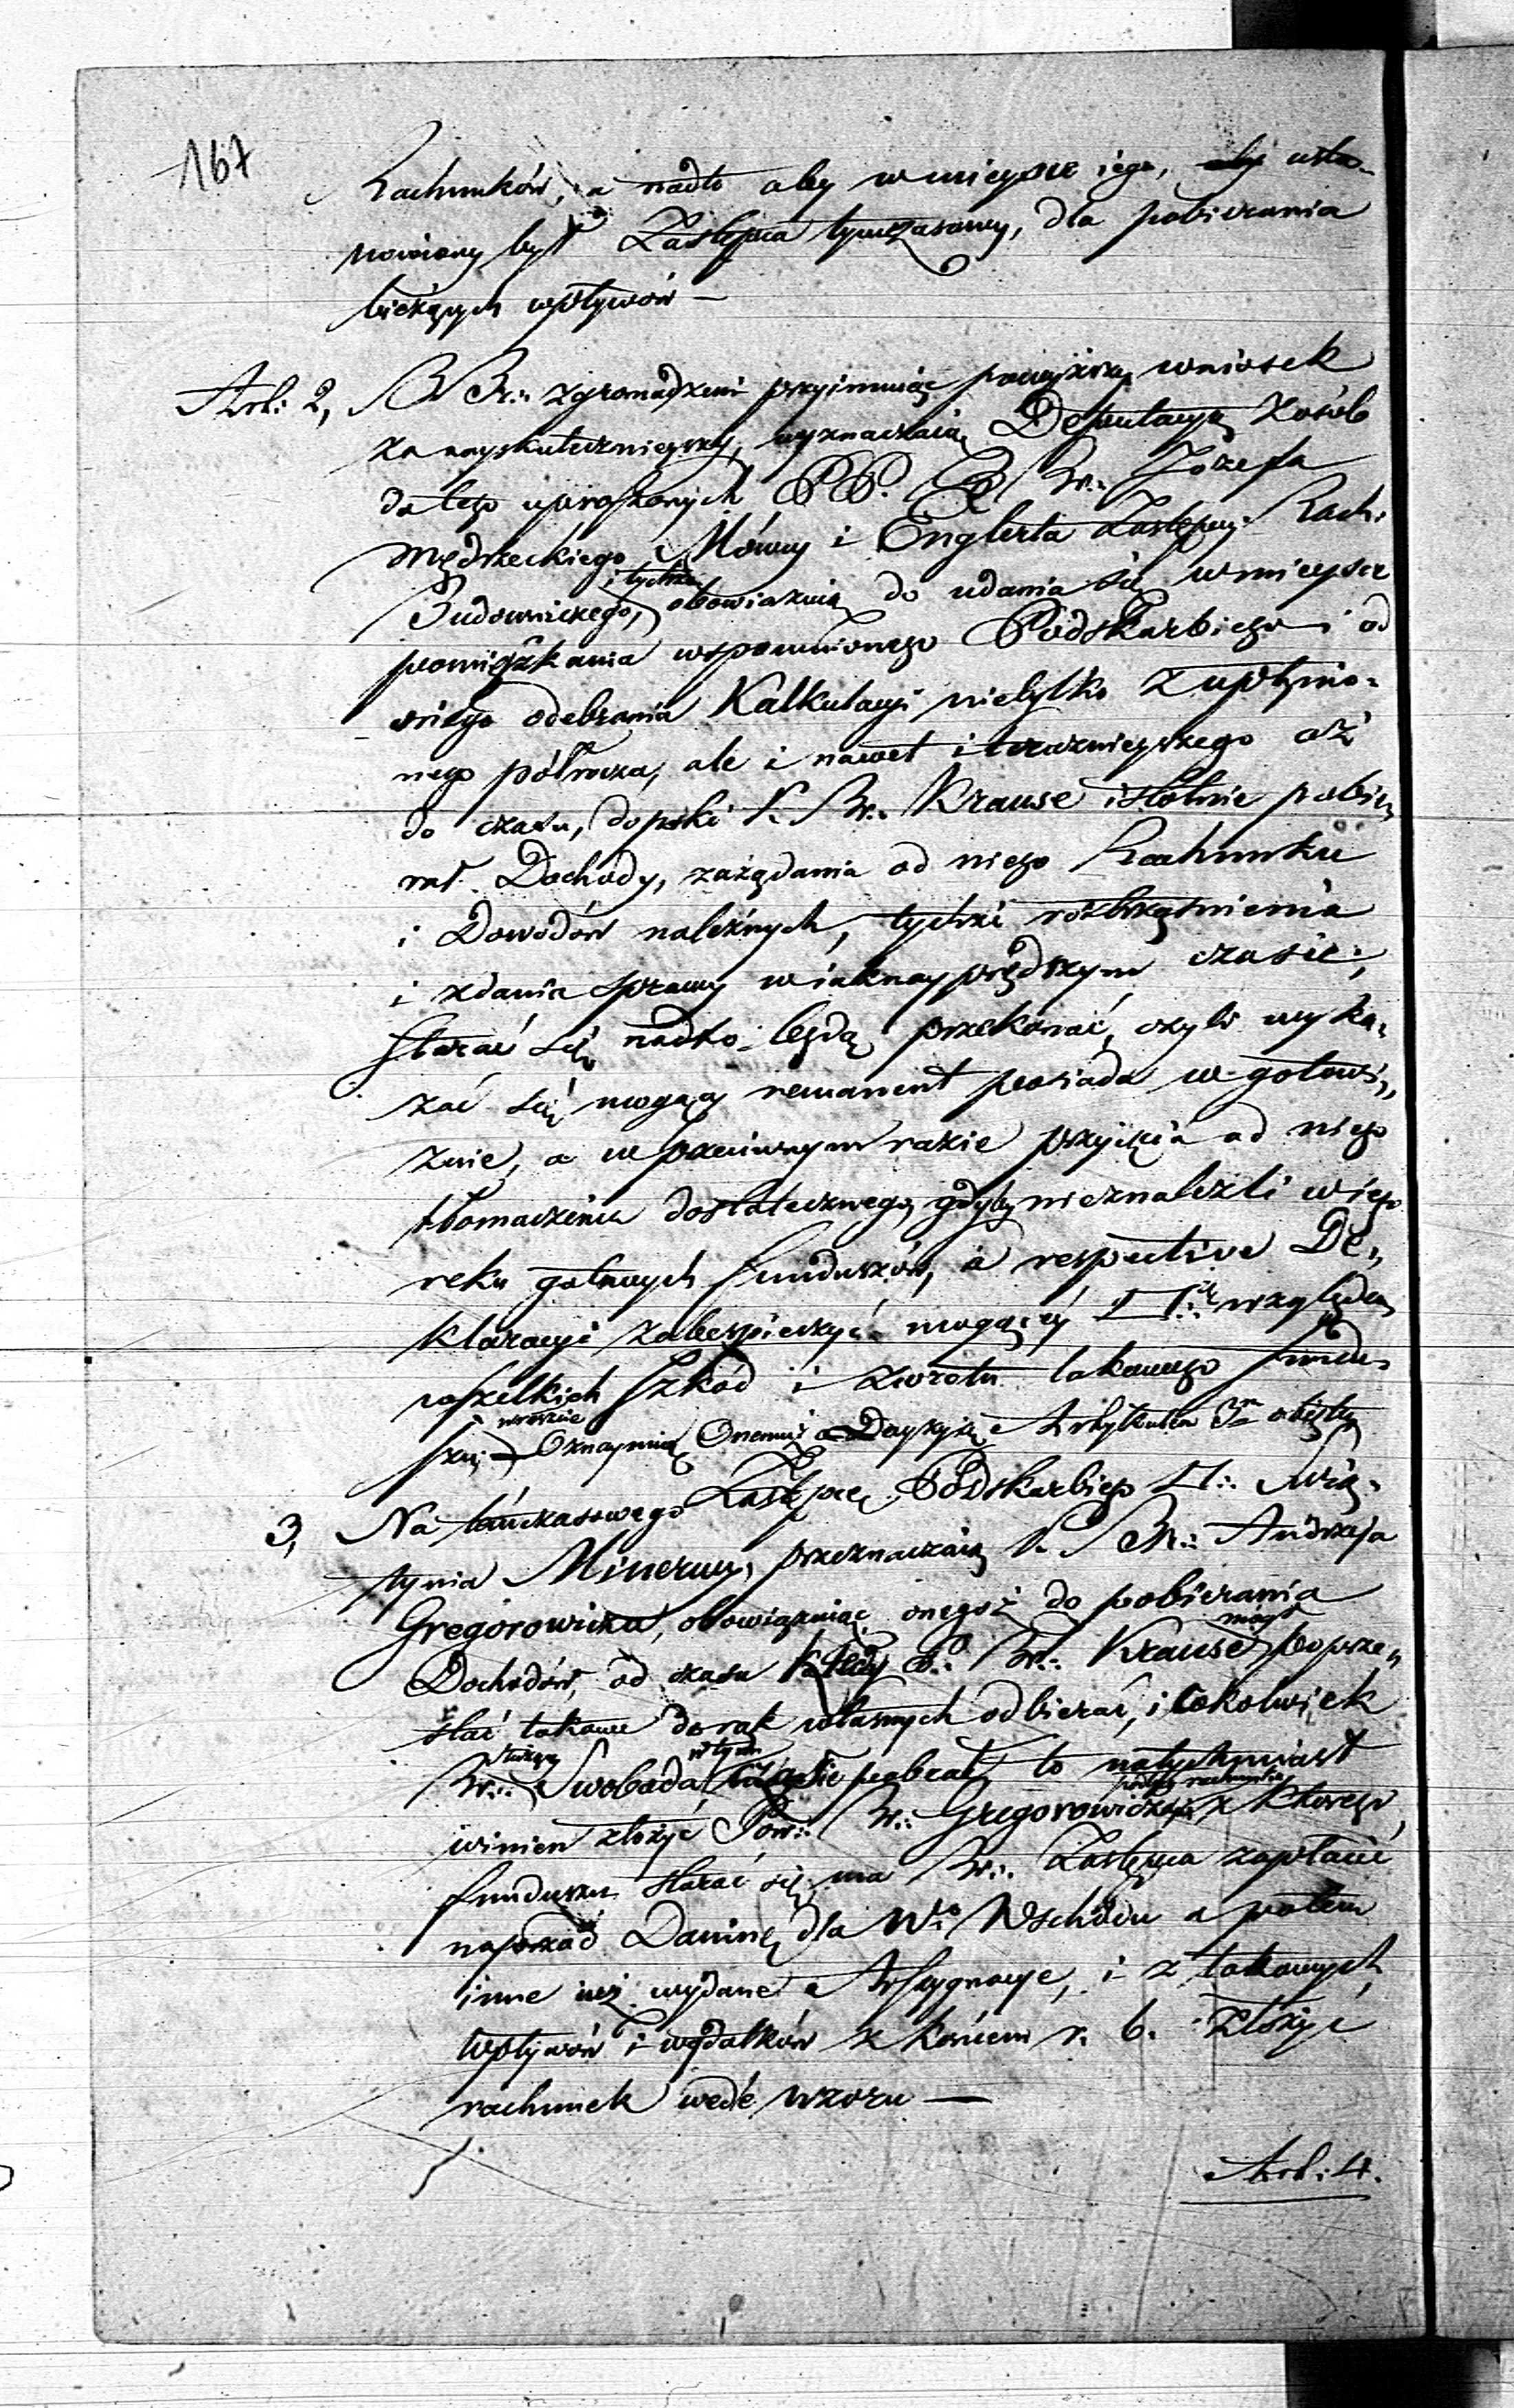 167
Rachunków, a nadto aby w mieysce iego, usta-
nowiony był Zastępca tymczasowy, dla pobierania
bieżących wpływów —
Art: 2, BBr.: zgromadzeni przyimuiąc powyższy wniosek
za nayskutecznieyszy, wyznaczaią Deputacyą z osób
do tego uproszonych PP. BBr.: Józefa
Mędrzeckiego Mówcy i Englerta Zastępcy Rach:
Budowniczego, i tychże obowiązuią do udania się w mieysce
pomięszkania wspomnionego Podskarbiego i od
niego odebrania Kalkulacyi nietylko z upłynio-
nego półrocza, ale i nawet i teraznieyszego aż
do czasu, dopóki P. Br.: Krause istotnie pobie-
rał Dochody, zażądania od niego Rachunku
i Dowodów należnych, tychże roztrząśnienia
i zdania sprawy w iaknayprędszym czasie;
starać się nadto będą przekonać, czyli wyka-
zać się mogący remanent posiada w gotowi-
znie, a w przeciwnym razie przyięcia od niego
tłomaczenia dostatecznego, gdyby nieznaleźli w iego
ręku gotowych funduszów, a respective De-
klaracyi zabespieczyć mogącey □.: względem
wszelkich szkód i zwrotu takowego fundu-
szu; nareszcie Oznaymią Onemuż Decyzyią Artykułem 3m obiętą
3, Na tymczasowego Zastępcę Podskarbiego □.: Świą-
tynia Minerwy, przeznaczaią P. Br.: Andrzeja
Gregorowicza, obowiązuiąc onegoż do pobierania
Dochodów, od czasu kiedy P.: Br.: Krause mógł poprze-
stać takowe do rąk własnych odbierać, i cokolwiek
Br.: Służący Swoboda w tym czasie pobrał, to natychmiast
winien złożyć Pow.: Br.: Gregorowiczowi podług rachunku z którego
funduszu starać się ma Br.: Zastępca zapłacić
naprzód Daninę dla W.o Wschodu a potem
inne iuż wydane Assygnacye, i z takowych
wpływów i wydatków z końcem r. b. złożyć
rachunek wedle wzoru —
Art: 4.